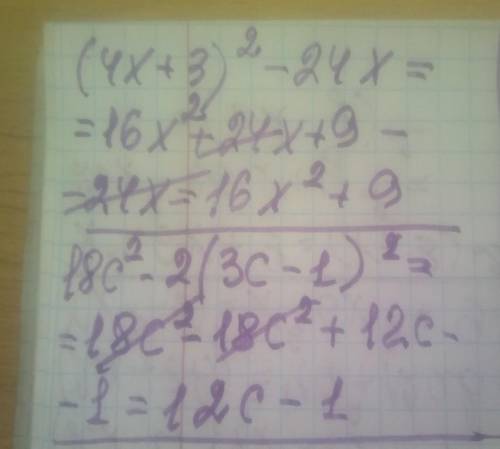 (4x+3)² - 24x =
= 16x² + 24x + 9 -
- 24x = 16x² + 9
18c² - 2(3c - 1)² =
= 18c² - 18c² + 12c -
- 1 = 12c - 1